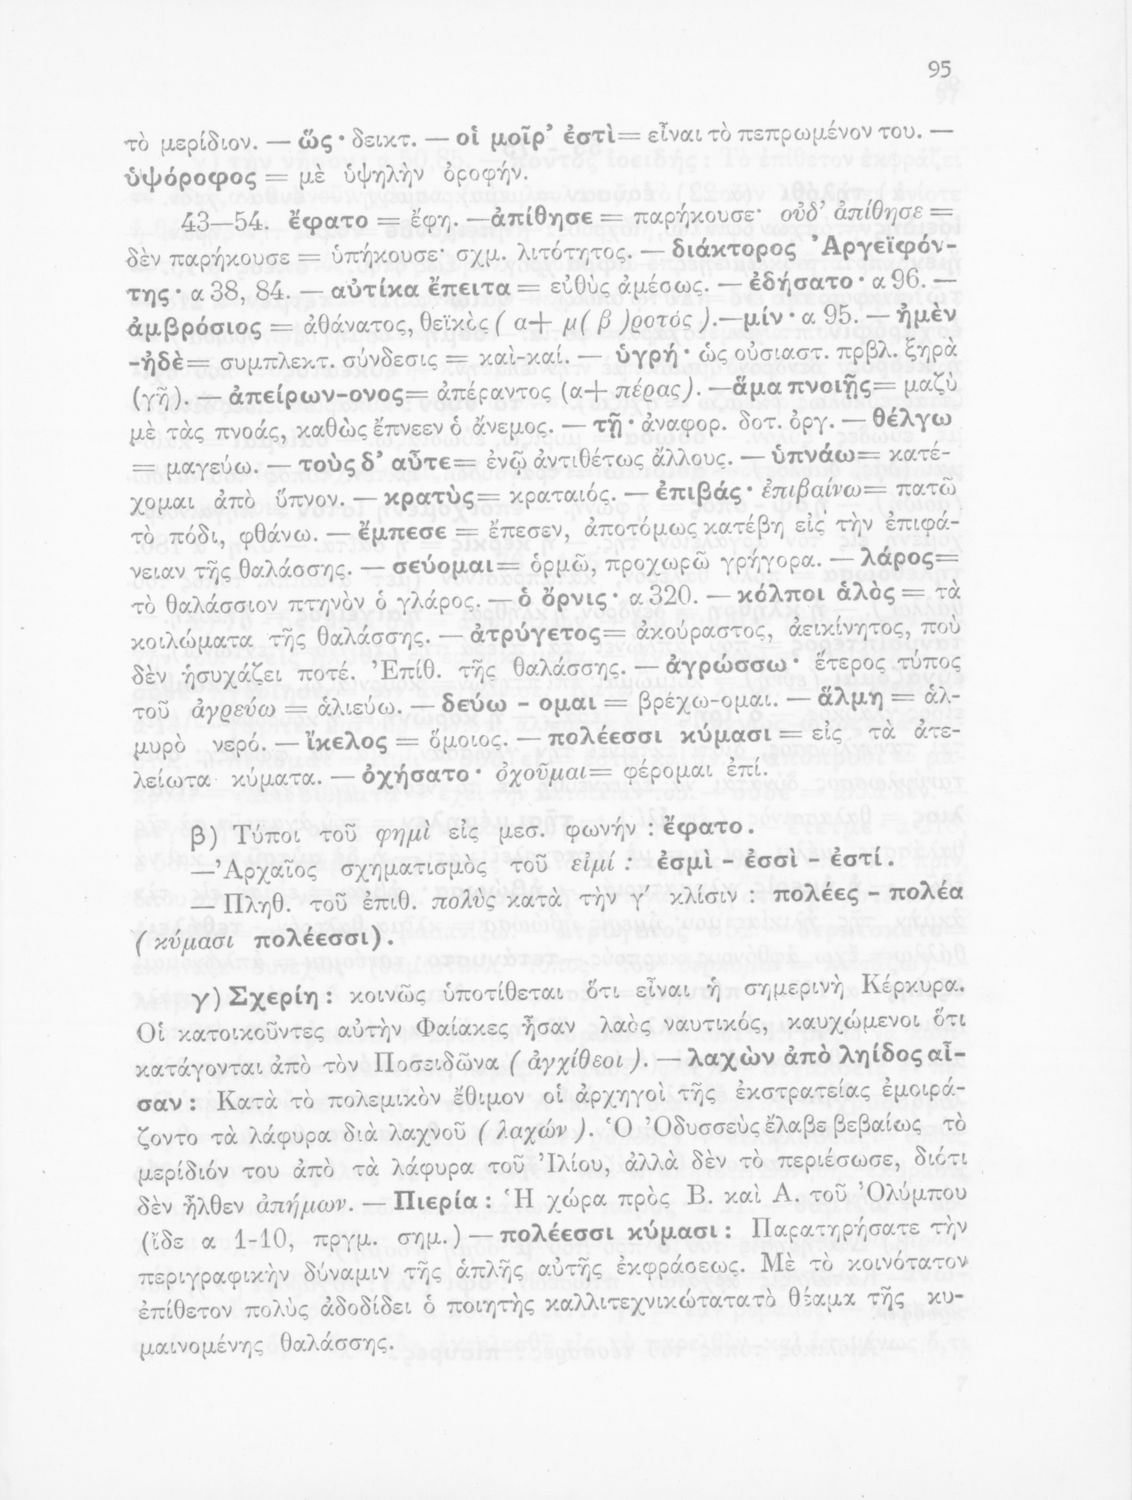 95
τὸ μερίδιον. — ὥς· δεικτ. — οἱ μοῖρ’ ἐστὶ= εἶναι τὸ πεπρωμένον του. —
ὑψόροφος = μὲ ὑψηλὴν ὀροφήν.
43—54. ἔφατο = ἔφη. —ἀπίθησε = παρήκουσε· οὐδ’ ἀπίθησε =
δὲν παρήκουσε = ὑπήκουσε· σχμ. λιτότητος. — διάκτορος Ἀργεϊφόν-
της· α 38, 84. — αὐτίκα ἔπειτα = εὐθὺς ἀμέσως. — ἐδήσατο· α 96. —
ἀμβρόσιος = ἀθάνατος, θεϊκὸς ( α+ μ( β )ροτός ).—μίν· α 95. — ἠμὲν
-ἠδὲ= συμπλεκτ. σύνδεσις = καὶ-καί. — ὑγρή· ὡς οὐσιαστ. πρβλ. ξηρὰ
(γῆ). — ἀπείρων-ονος= ἀπέραντος (α+ πέρας). —ἅμα πνοιῇς= μαζὺ
μὲ τὰς πνοάς, καθὼς ἔπνεεν ὁ ἄνεμος. — τῇ· ἀναφορ. δοτ. ὀργ. — θέλγω
= μαγεύω. — τοὺς δ’ αὖτε= ἐνῷ ἀντιθέτως ἄλλους. — ὑπνάω= κατέ-
χομαι ἀπὸ ὕπνον. — κρατὺς= κραταιός. — ἐπιβάς· ἐπιβαίνω= πατῶ
τὸ πόδι, φθάνω. — ἔμπεσε = ἔπεσεν, ἀποτόμως κατέβη εἰς τὴν ἐπιφά-
νειαν τῆς θαλάσσης. — σεύομαι= ὁρμῶ, προχωρῶ γρήγορα. — λάρος=
τὸ θαλάσσιον πτηνὸν ὁ γλάρος. — ὁ ὄρνις· α 320. — κόλποι ἁλὸς = τὰ
κοιλώματα τῆς θαλάσσης. — ἀτρύγετος= ἀκούραστος, ἀεικίνητος, ποὺ
δὲν ἡσυχάζει ποτέ. Ἐπίθ. τῆς θαλάσσης. — ἀγρώσσω· ἕτερος τύπος
τοῦ ἀγρεύω = ἁλιεύω. — δεύω - ομαι = βρέχω-ομαι. — ἅλμη = ἁλ-
μυρὸ νερό. — ἴκελος = ὅμοιος. — πολέεσσι κύμασι = εἰς τὰ ἀτε-
λείωτα κύματα. — ὀχήσατο· ὀχοῦμαι= φέρομαι ἐπί.
β) Τύποι τοῦ φημὶ εἰς μεσ. φωνήν : ἔφατο.
—Ἀρχαῖος σχηματισμὸς τοῦ εἰμί : ἐσμὶ - ἐσσὶ - ἐστί.
— Πληθ. τοῦ ἐπιθ. πολὺς κατὰ τὴν γ΄ κλίσιν : πολέες - πολέα
( κύμασι πολέεσσι).
γ) Σχερίη : κοινῶς ὑποτίθεται ὅτι εἶναι ἡ σημερινὴ Κέρκυρα.
Οἱ κατοικοῦντες αὐτὴν Φαίακες ἦσαν λαὸς ναυτικός, καυχώμενοι ὅτι
κατάγονται ἀπὸ τὸν Ποσειδῶνα ( ἀγχίθεοι ). — λαχὼν ἀπὸ ληίδος αἶ-
σαν : Κατὰ τὸ πολεμικὸν ἔθιμον οἱ ἀρχηγοὶ τῆς ἐκστρατείας ἐμοιρά-
ζοντο τὰ λάφυρα διὰ λαχνοῦ ( λαχών ). Ὁ Ὀδυσσεὺς ἔλαβε βεβαίως τὸ
μερίδιόν του ἀπὸ τὰ λάφυρα τοῦ Ἰλίου, ἀλλὰ δὲν τὸ περιέσωσε, διότι
δὲν ἦλθεν ἀπήμων. — Πιερία : Ἡ χώρα πρὸς Β. καὶ Α. τοῦ Ὀλύμπου
(ἴδε α 1-10, πργμ. σημ.) — πολέεσσι κύμασι : Παρατηρήσατε τὴν
περιγραφικὴν δύναμιν τῆς ἁπλῆς αὐτῆς ἐκφράσεως. Μὲ τὸ κοινότατον
ἐπίθετον πολὺς ἀδοδίδει ὁ ποιητὴς καλλιτεχνικώτατατὸ θέαμα τῆς κυ-
μαινομένης θαλάσσης.